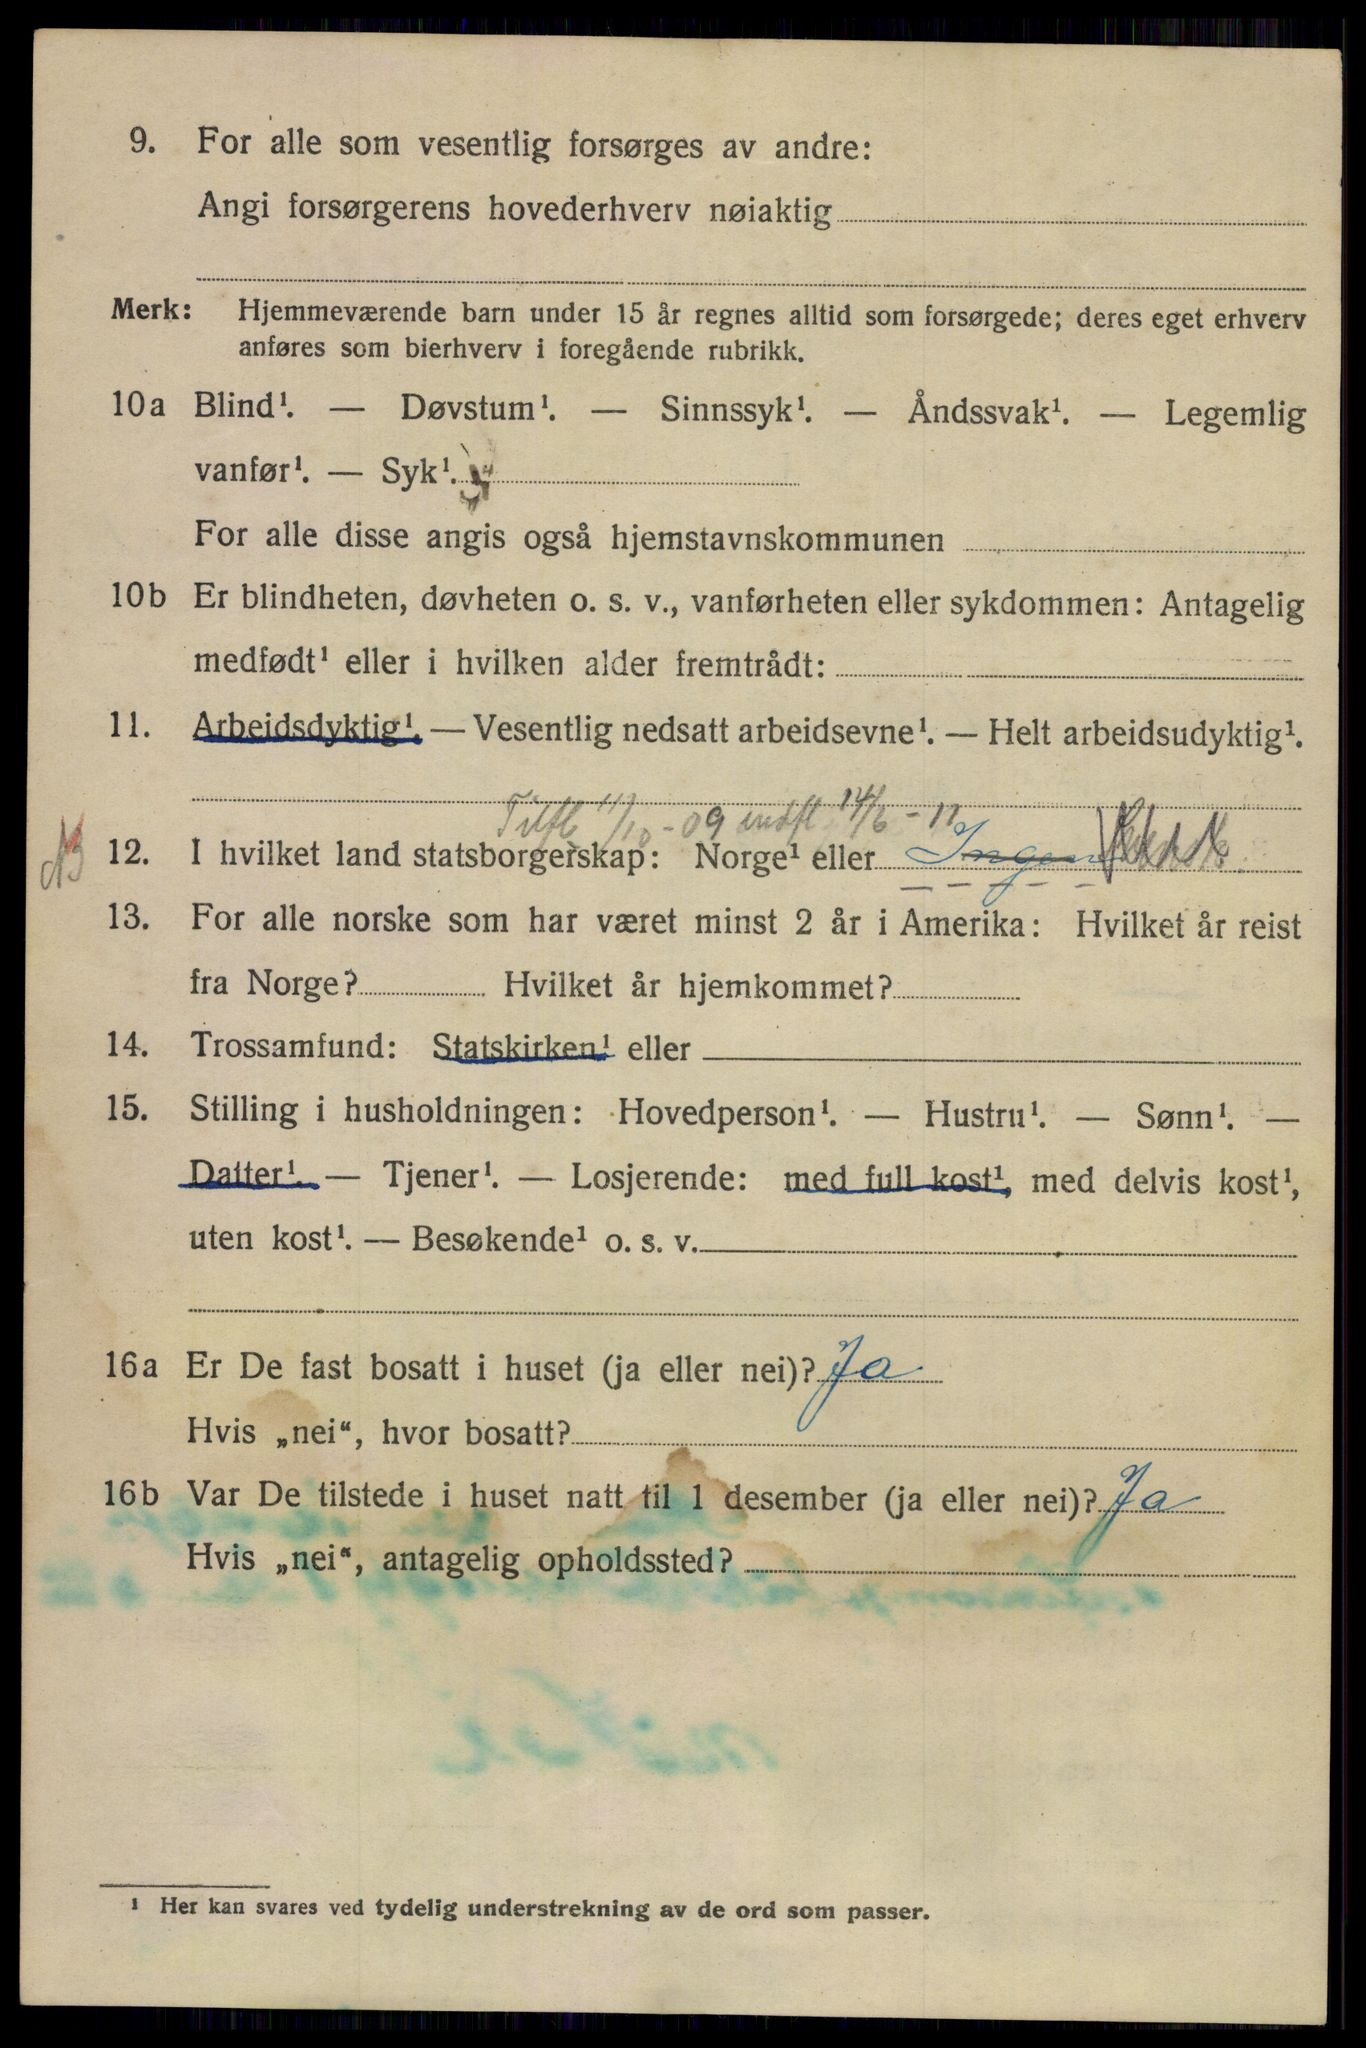 9. For alle som vesentlig forsørges av andre:
Angi forsørgerens hovederhverv nøiaktig
Merk: Hjemmeværende barn under 15 år regnes alltid som forsørgede; deres eget erhverv
anføres som bierhverv i foregående rubrikk.
10a Blind¹. — Døvstum¹. — Sinnssyk¹. — Åndssvak¹. — Legemlig
vanfør¹. — Syk¹.
For alle disse angis også hjemstavnskommunen
10b Er blindheten, døvheten o. s. v., vanførheten eller sykdommen: Antagelig
medfødt¹ eller i hvilken alder fremtrådt:
11. Arbeidsdyktig¹. — Vesentlig nedsatt arbeidsevne¹. — Helt arbeidsudyktig¹.
Tilfl. 11/10 - 09 indfl. 14/6 - 11
12. I hvilket land statsborgerskap: Norge¹ eller Ingen
13. For alle norske som har været minst 2 år i Amerika: Hvilket år reist
fra Norge? Hvilket år hjemkommet?
14. Trossamfund: Statskirken¹ eller
15. Stilling i husholdningen: Hovedperson¹. — Hustru¹. — Sønn¹. —
Datter¹. — Tjener¹. — Losjerende: med full kost¹, med delvis kost¹,
uten kost¹. — Besøkende¹ o. s. v.
16a Er De fast bosatt i huset (ja eller nei)? Ja
Hvis „nei“, hvor bosatt?
16b Var De tilstede i huset natt til 1 desember (ja eller nei)? Ja
Hvis „nei“, antagelig opholdssted?
¹ Her kan svares ved tydelig understrekning av de ord som passer.